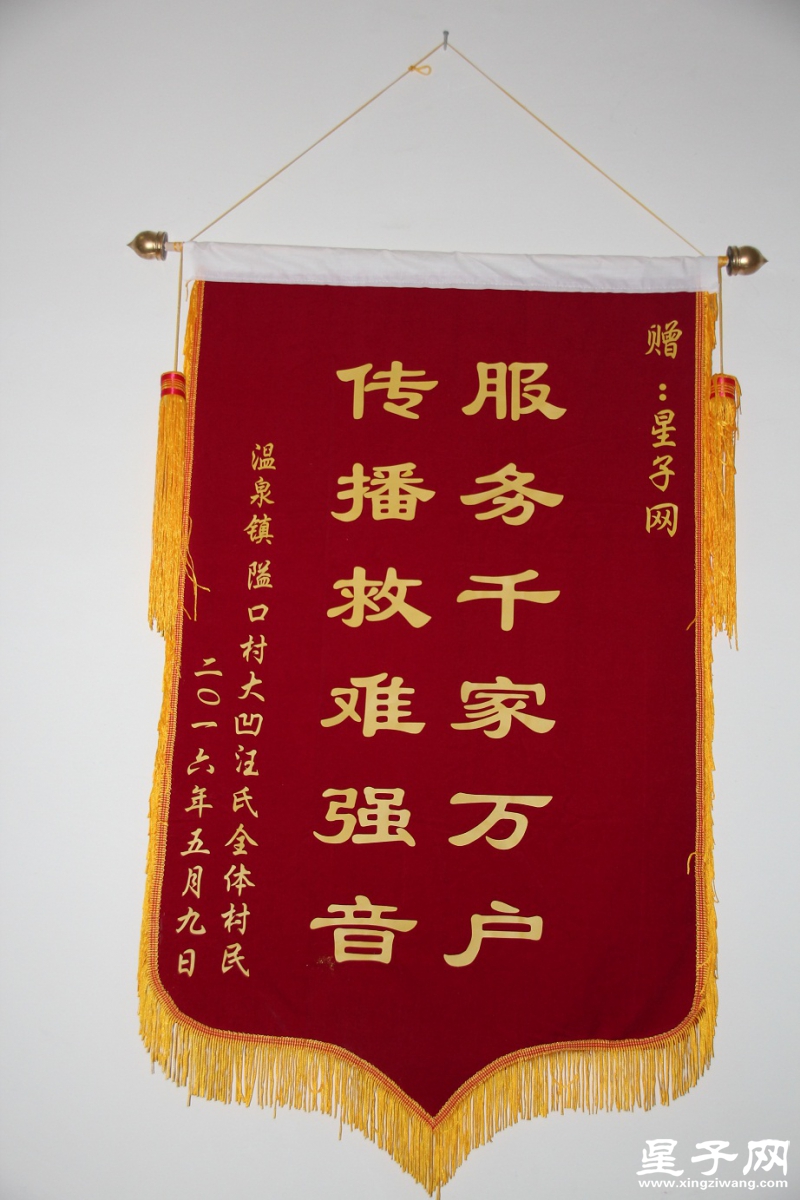 赠：星子网
服务千家万户
传播救难强音
温泉镇 隘口村大凹汪氏全体村民
二〇一六年五月九日
星子网
www.xingziwang.com